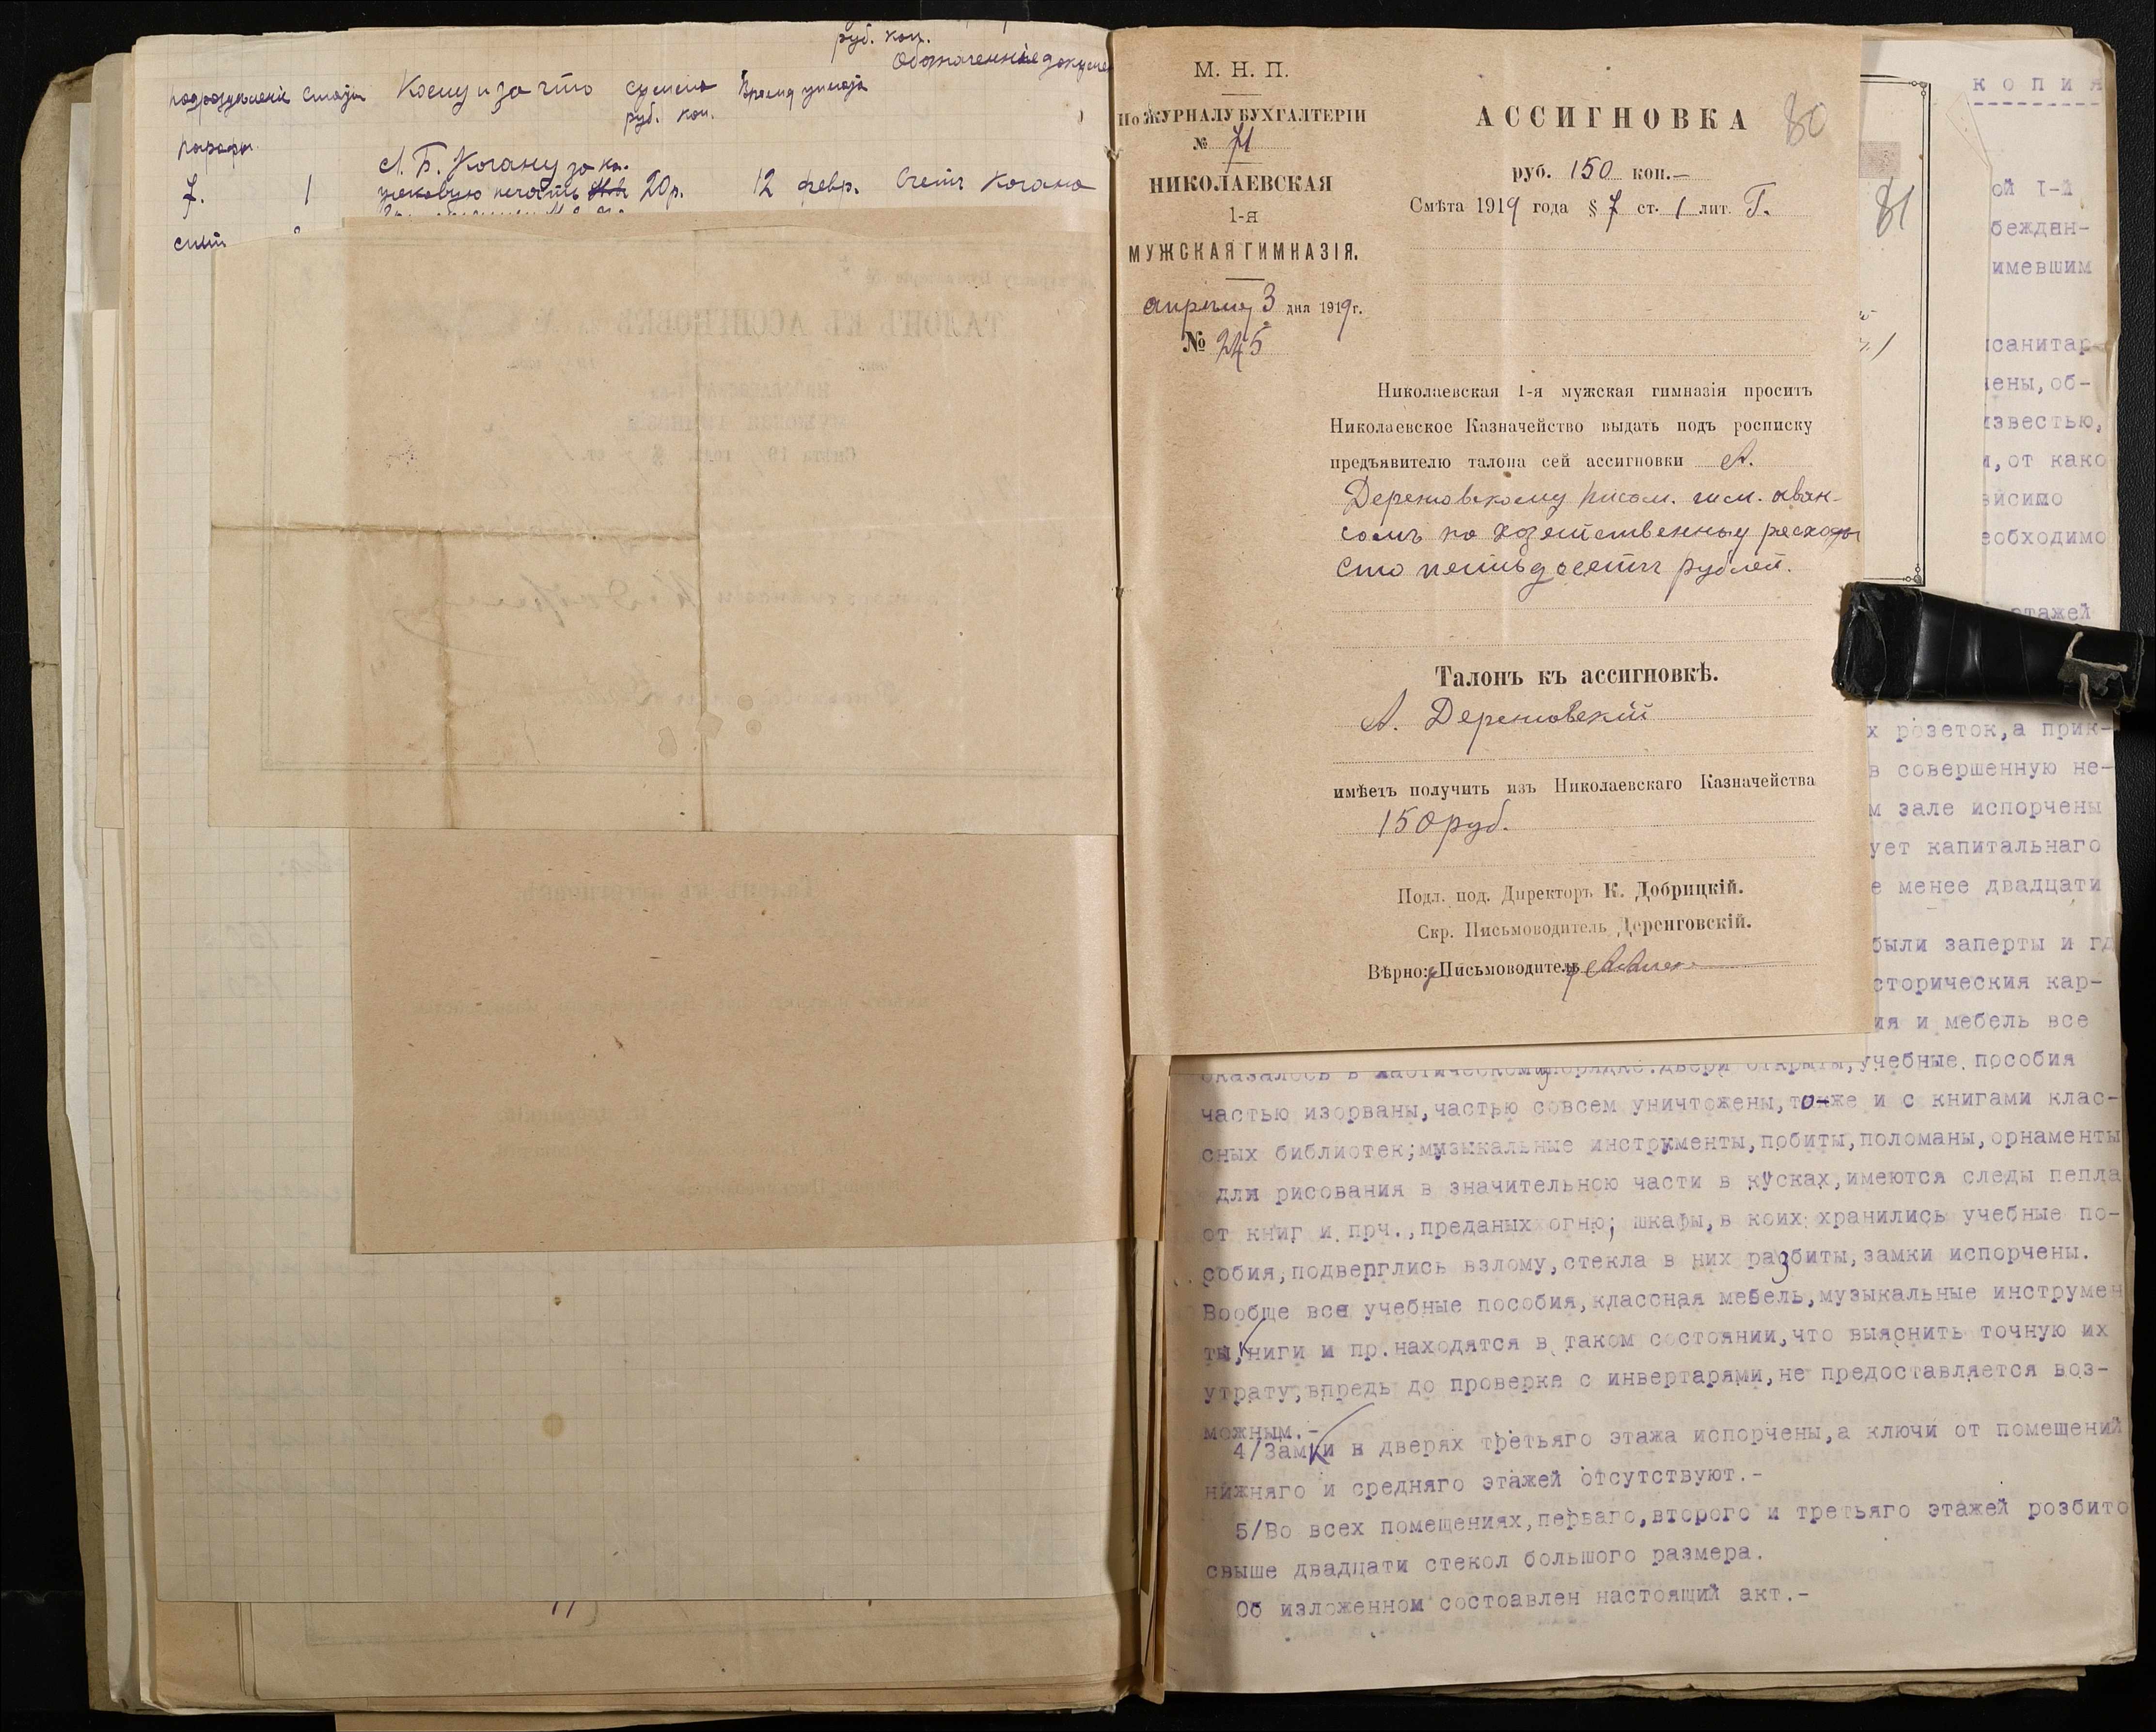 руб. коп.
Обозначение докумен
подразделение статьи Кому и за что сумма Время уплаты
руб. коп.
параграф.
А. Б. Когану за ка-
7. 1 учуковую печать 20 р. 12 февр. Счетъ Когана
М. Н. П.
По ЖУРНАЛУ БУХГАЛТЕРІИ
№ 71
НИКОЛАЕВСКАЯ
1-я
МУЖСКАЯ ГИМНАЗІЯ.
апреля 3 дня 1919 г.
№ 245
АССИГНОВКА
80
руб. 150 коп.—
Смѣта 1919 года § 7 ст. 1 лит. Г.
Николаевская 1-я мужская гимназія проситъ
Николаевское Казначейство выдать подъ росписку
предъявителю талона сей ассигновки А.
Деренговскому письм. гим. аван-
сомъ на хозяйственные расходы
сто пятьдесятъ рублей.
Талонъ къ ассигновкѣ.
А. Деренговскій
имѣетъ получить изъ Николаевскаго Казначейства
150 руб.
Подл. под. Директоръ К. Добрицкій.
Скр. Письмоводитель Деренговскій.
Вѣрно: Письмоводитель
81
КОПИЯ
ой I-й
беждан-
имевшим
санитар-
ены,об-
известью,
и,от како
висимо
еобходимо
этажей
х розеток,а прик-
в совершенную не-
м зале испорчены
ует капитальнаго
е менее двадцати
были заперты и гд
сторическия кар-
ия и мебель все
оказалось в хаотическом порядке.двери открыты,учебные пособия
частью изорваны,частью совсем уничтожены,тоже и с книгами клас-
сных библиотек;музыкальные инструменты,побиты,поломаны,орнаменты
для рисования в значительною части в кусках,имеются следы пепла
от книг и прч.,преданых огню; шкафы,в коих хранились учебные по-
собия,подверглись взлому,стекла в них разбиты,замки испорчены.
Вообще все учебные пособия,классная мебель,музыкальные инструмен
ты,книги и пр.находятся в таком состоянии,что выяснить точную их
утрату,впредь до проверка с инвертарями,не предоставляется воз-
можным.-
4/Замки в дверях третьяго этажа испорчены,а ключи от помещений
нижняго и средняго этажей отсутствуют.-
5/Во всех помещениях,перваго,второго и третьяго этажей розбито
свыше двадцати стекол большого размера.
Об изложенном состоавлен настоящий акт.-